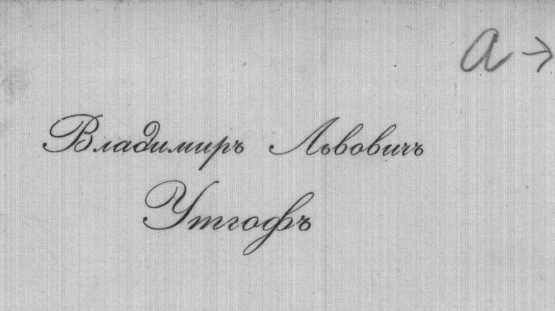 a →
Владимиръ Львовичъ
Утгофъ